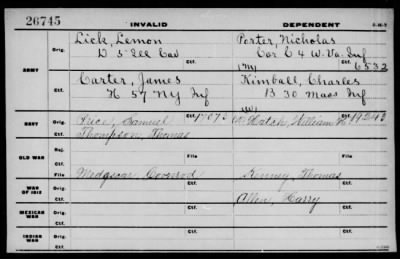 26745
INVALID
DEPENDENT
ARMY
Orig. Lick, Lemon
D 5 Ill Cav
Porter, Nicholas
Cor. C 4 W. Va. Inf
Ctf. (M) 6532
Orig. Carter, James
H 57 NY Inf
Kimball, Charles
B 30 Mass Inf
Ctf. (W)
NAVY
Orig. Price, Samuel
Hatch, William
Ctf. Thompson, Thomas
OLD WAR
Rej.
Ctf. File
File
WAR OF 1812
Orig.
Kenney, Thomas
Ctf. Allen, Harry
MEXICAN WAR
Orig.
Ctf.
INDIAN WAR
Orig.
Ctf.